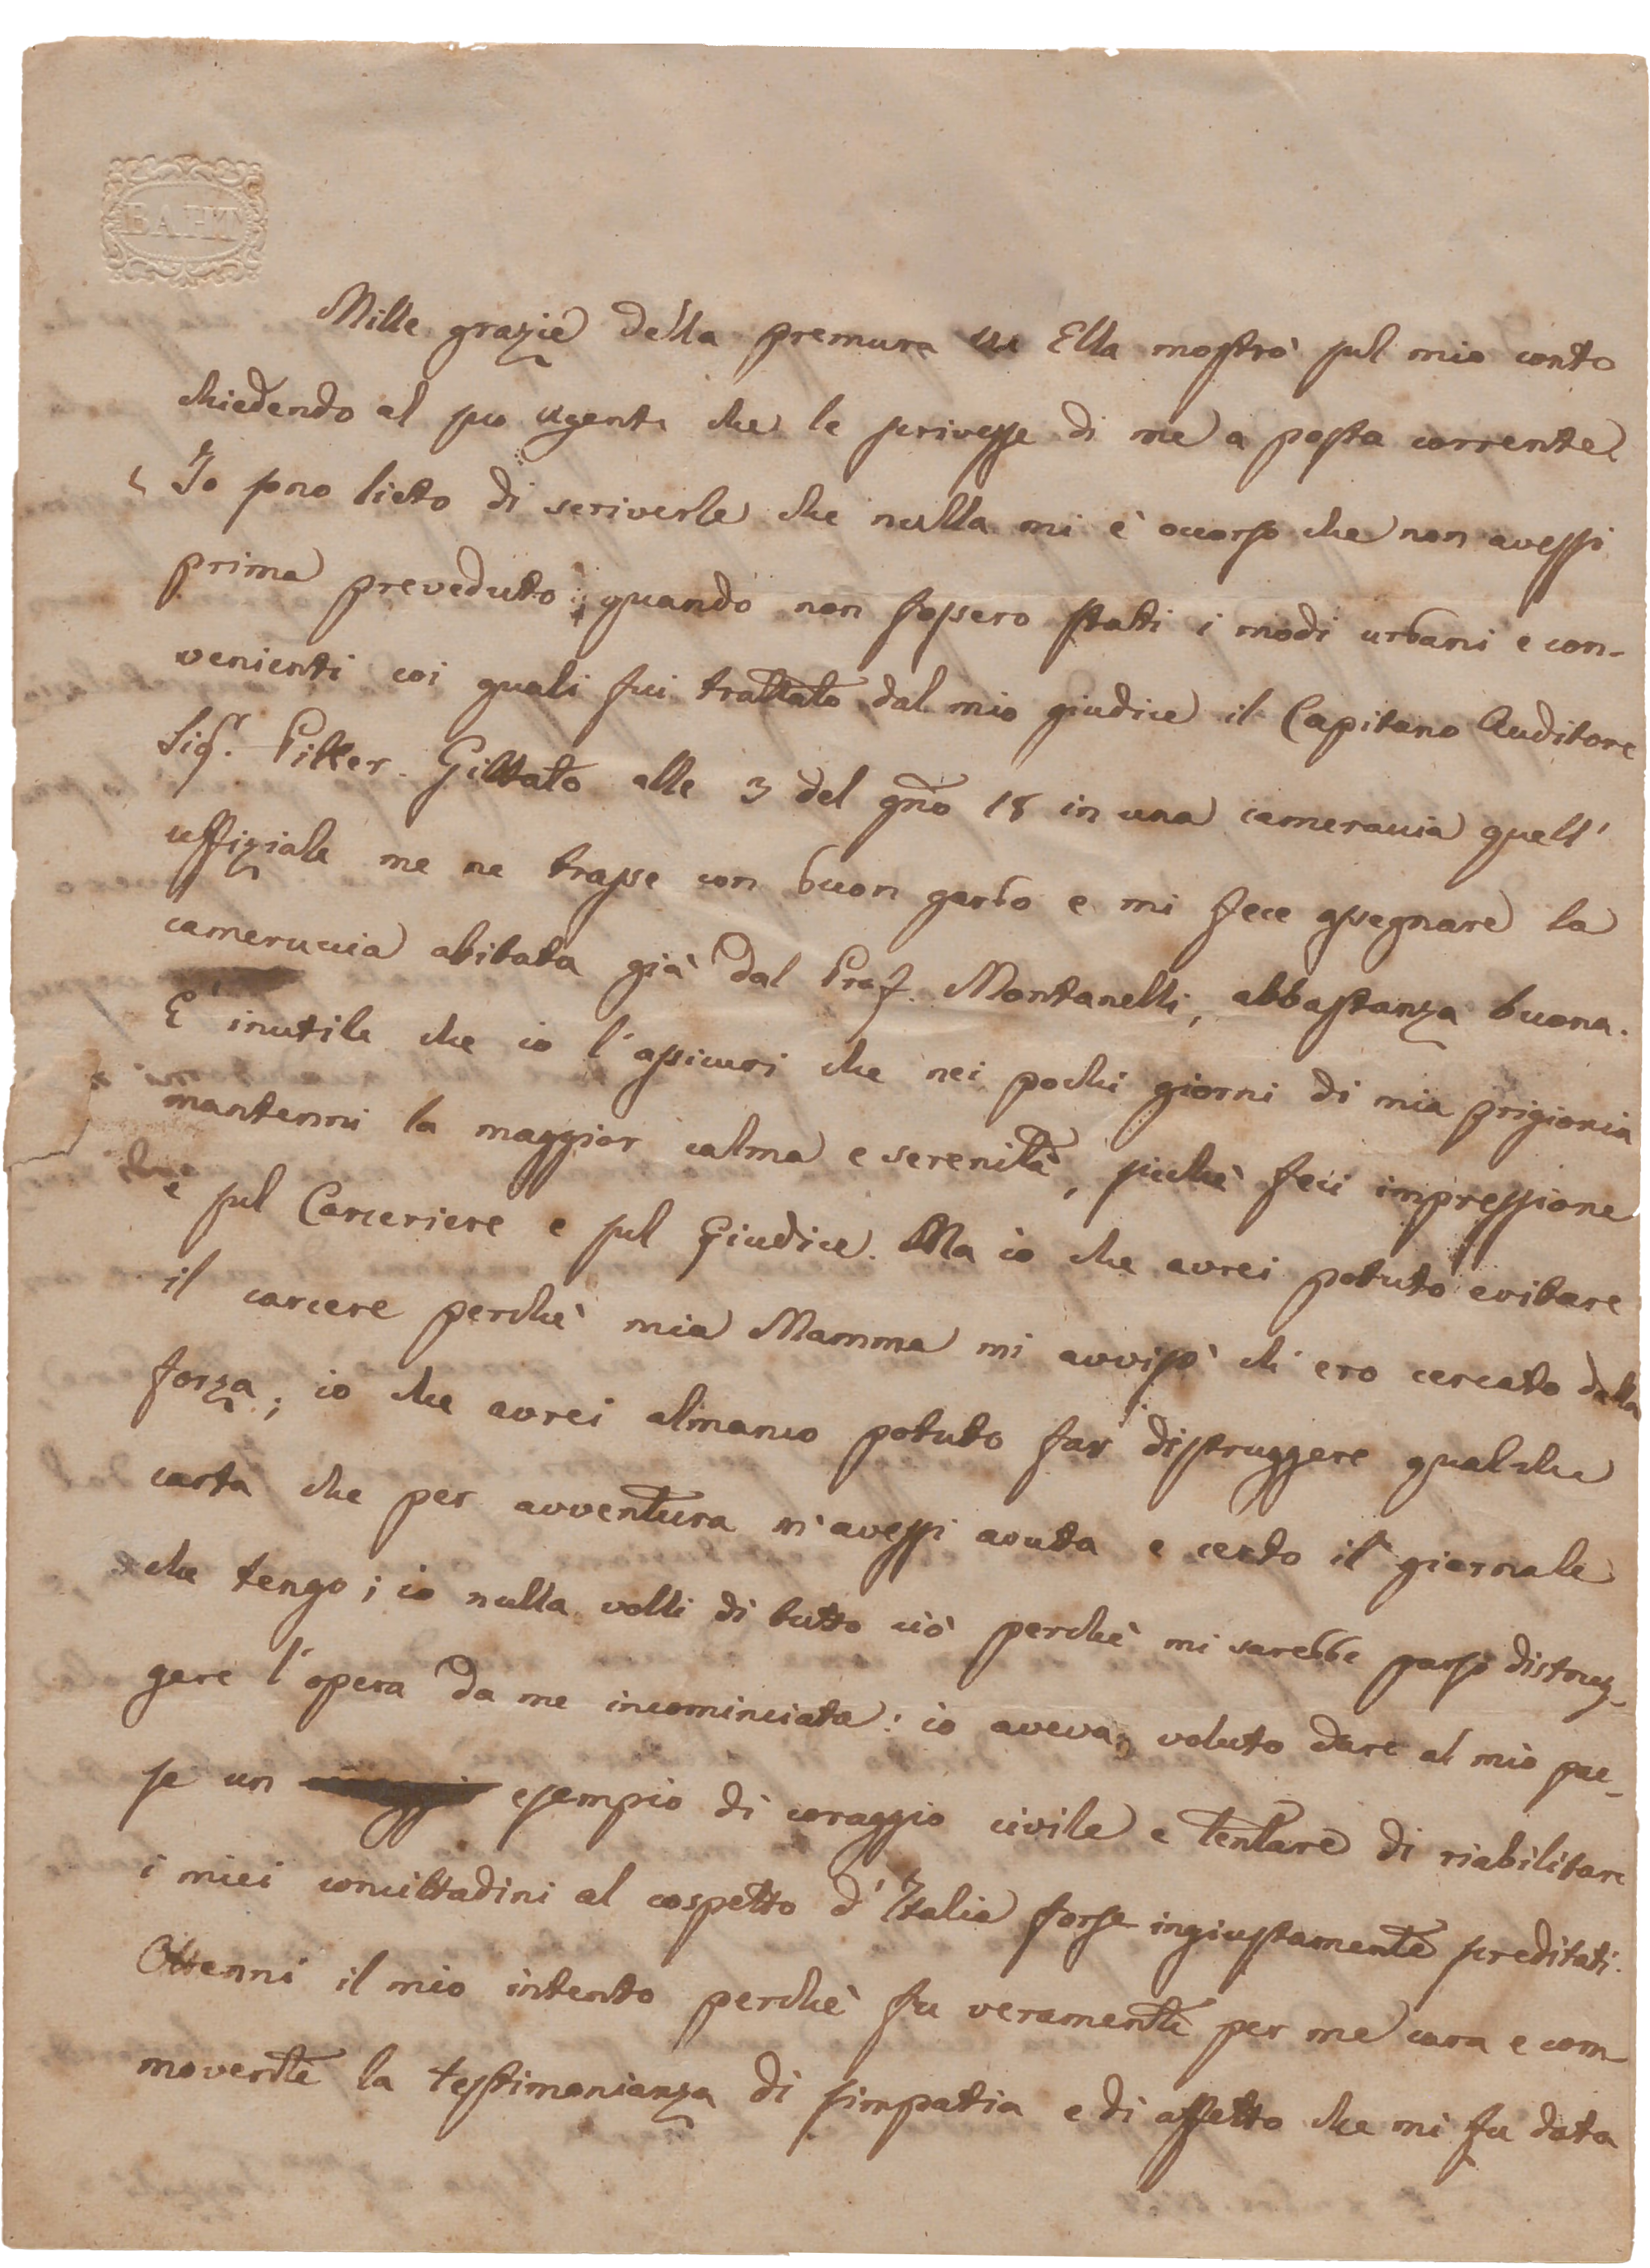 BAHT
Mille grazie della premura che Ella mostrò sul mio conto
chiedendo al suo agente che le scrivesse di me a posta corrente.
Io sono lieto di scriverle che nulla mi è occorso che non avessi
prima preveduto; quando non fossero stati i modi urbani e con-
venienti coi quali fui trattato dal mio giudice il Capitano Auditore
Sigr. Pilker. Gittato alle 3 del gno 18 in una cameraccia quell'
uffiziale me ne trasse con buon garbo e mi fece assegnare la
cameruccia abitata già dal Prof. Montanelli, abbastanza buona.
E' inutile che io l'assicuri che nei pochi giorni di mia prigionia
mantenni la maggior calma e serenità, sicchè feci impressione
sul Carceriere e sul Giudice. Ma io che avrei potuto evitare
il carcere perchè mia Mamma mi avvisò ch'ero cercato dalla
forza; io che avrei almanco potuto far distruggere qualche
carta che per avventura m'avessi avuta e certo il giornale
che tengo; io nulla volli di tutto ciò perchè mi sarebbe parso distrug-
gere l'opera da me incominciata: io aveva voluto dare al mio pae-
se un esempio di coraggio civile e tentare di riabilitare
i miei concittadini al cospetto d'Italia forse ingiustamente screditati.
Ottenni il mio intento perchè fu veramente per me cara e com-
movente la testimonianza di simpatia e di affetto che mi fu data